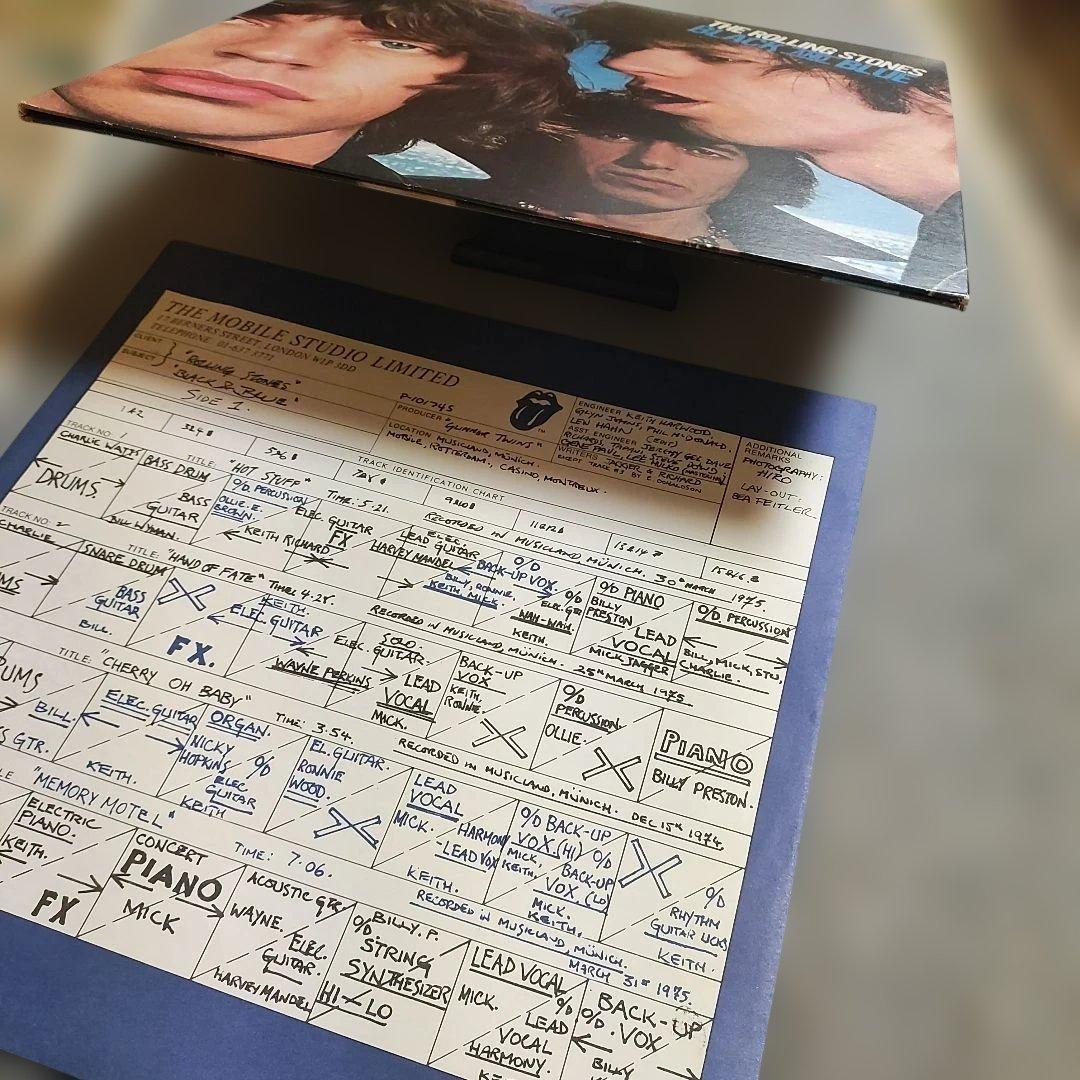 THE ROLLING STONES
BLACK AND BLUE
THE MOBILE STUDIO LIMITED
17 BERNERS STREET, LONDON W1P 3DD
TELEPHONE: 01-637 3771
CLIENT
SUBJECT
"ROLLING STONES"
"BLACK & BLUE"
SIDE 1.
P-101745
PRODUCER "GLIMMER TWINS"
LOCATION MUSICLAND, MÜNICH.
MOBILE, ROTTERDAM, CASINO, MONTREUX.
TM
ENGINEER KEITH HARWOOD
GLYN JOHNS, PHIL McDONALD,
LEW HAHN (EDIT)
ASST ENGINEER JEREMY GEE, DAVE
RICHARDS, TAPANI,
GENE PAUL, LEE HULKO (MASTERING)
WRITERS JAGGER & RICHARD
EXCEPT TRACK #3 BY E. DONALDSON
ADDITIONAL
REMARKS
PHOTOGRAPHY:
HIRO
LAY-OUT:
BEA FEITLER
TRACK IDENTIFICATION CHART
1 & 2
TRACK NO. 1
TITLE: "HOT STUFF" TIME: 5.21. RECORDED IN MUSICLAND MÜNICH. 30TH MARCH 1975.
CHARLIE WATTS
DRUMS
BASS DRUM
BASS
GUITAR
BILL WYMAN.
O/D PERCUSSION
OLLIE. E.
BROWN.
ELEC. GUITAR
FX
KEITH RICHARD
LEAD ELEC.
GUITAR
HARVEY MANDEL
O/D
BACK-UP VOX.
BILLY, RONNIE,
KEITH, MICK
O/D
ELEC. GTR
WAH-WAH.
KEITH.
O/D PIANO
BILLY
PRESTON
LEAD
VOCAL
MICK JAGGER
O/D PERCUSSION
BILL, MICK, STU,
CHARLIE.
TRACK NO. 2
TITLE: "HAND OF FATE" TIME: 4.28. RECORDED IN MUSICLAND, MÜNICH. 25TH MARCH 1975
CHARLIE
SNARE DRUM
BASS
GUITAR
BILL.
FX.
KEITH.
ELEC. GUITAR
WAYNE PERKINS
SOLO
ELEC. GUITAR.
LEAD
VOCAL
MICK.
BACK-UP
VOX
KEITH,
RONNIE.
O/D
PERCUSSION.
OLLIE.
PIANO
BILLY PRESTON.
TITLE: "CHERRY OH BABY" TIME: 3.54. RECORDED IN MUSICLAND, MÜNICH. DEC 15TH 1974.
BILL.
ELEC. GUITAR
KEITH.
ORGAN.
NICKY
HOPKINS
O/D
ELEC
GUITAR
KEITH
EL. GUITAR.
RONNIE
WOOD.
LEAD
VOCAL
MICK.
HARMONY
-LEAD VOX
KEITH.
O/D BACK-UP
VOX. (HI)
MICK,
KEITH,
O/D
BACK-UP
VOX. (LO)
MICK.
KEITH.
O/D
RHYTHM
GUITAR LICKS
KEITH.
"MEMORY MOTEL" TIME: 7.06. RECORDED IN MUSICLAND, MÜNICH. MARCH 31ST 1975.
ELECTRIC
PIANO.
KEITH.
FX
CONCERT
PIANO
MICK
ACOUSTIC GTR
WAYNE.
ELEC.
GUITAR.
HARVEY MANDEL
BILLY. P.
O/D
STRING
SYNTHESIZER
HI - LO
LEAD VOCAL
MICK.
O/D
LEAD
VOCAL
HARMONY.
BACK-UP
O/D. VOX
BILLY